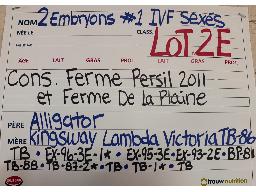 NOM 2 Embryons #1 IVF sexés
NÉE LE CLASSE
NUMÉRO LOT 2E
AGE LAIT GRAS PROT. LAIT GRAS PROT.
Cons. Ferme Persil 2011
et Ferme De la Plaine
PÈRE Alligator
MÈRE Kingsway Lambda Victoria TB-86
• TB • EX-96-3E-1* • EX-95-3E • EX-93-2E • BP-81
• TB-88 • TB-87-2* • TB • TB-1* • TB
trouw nutrition